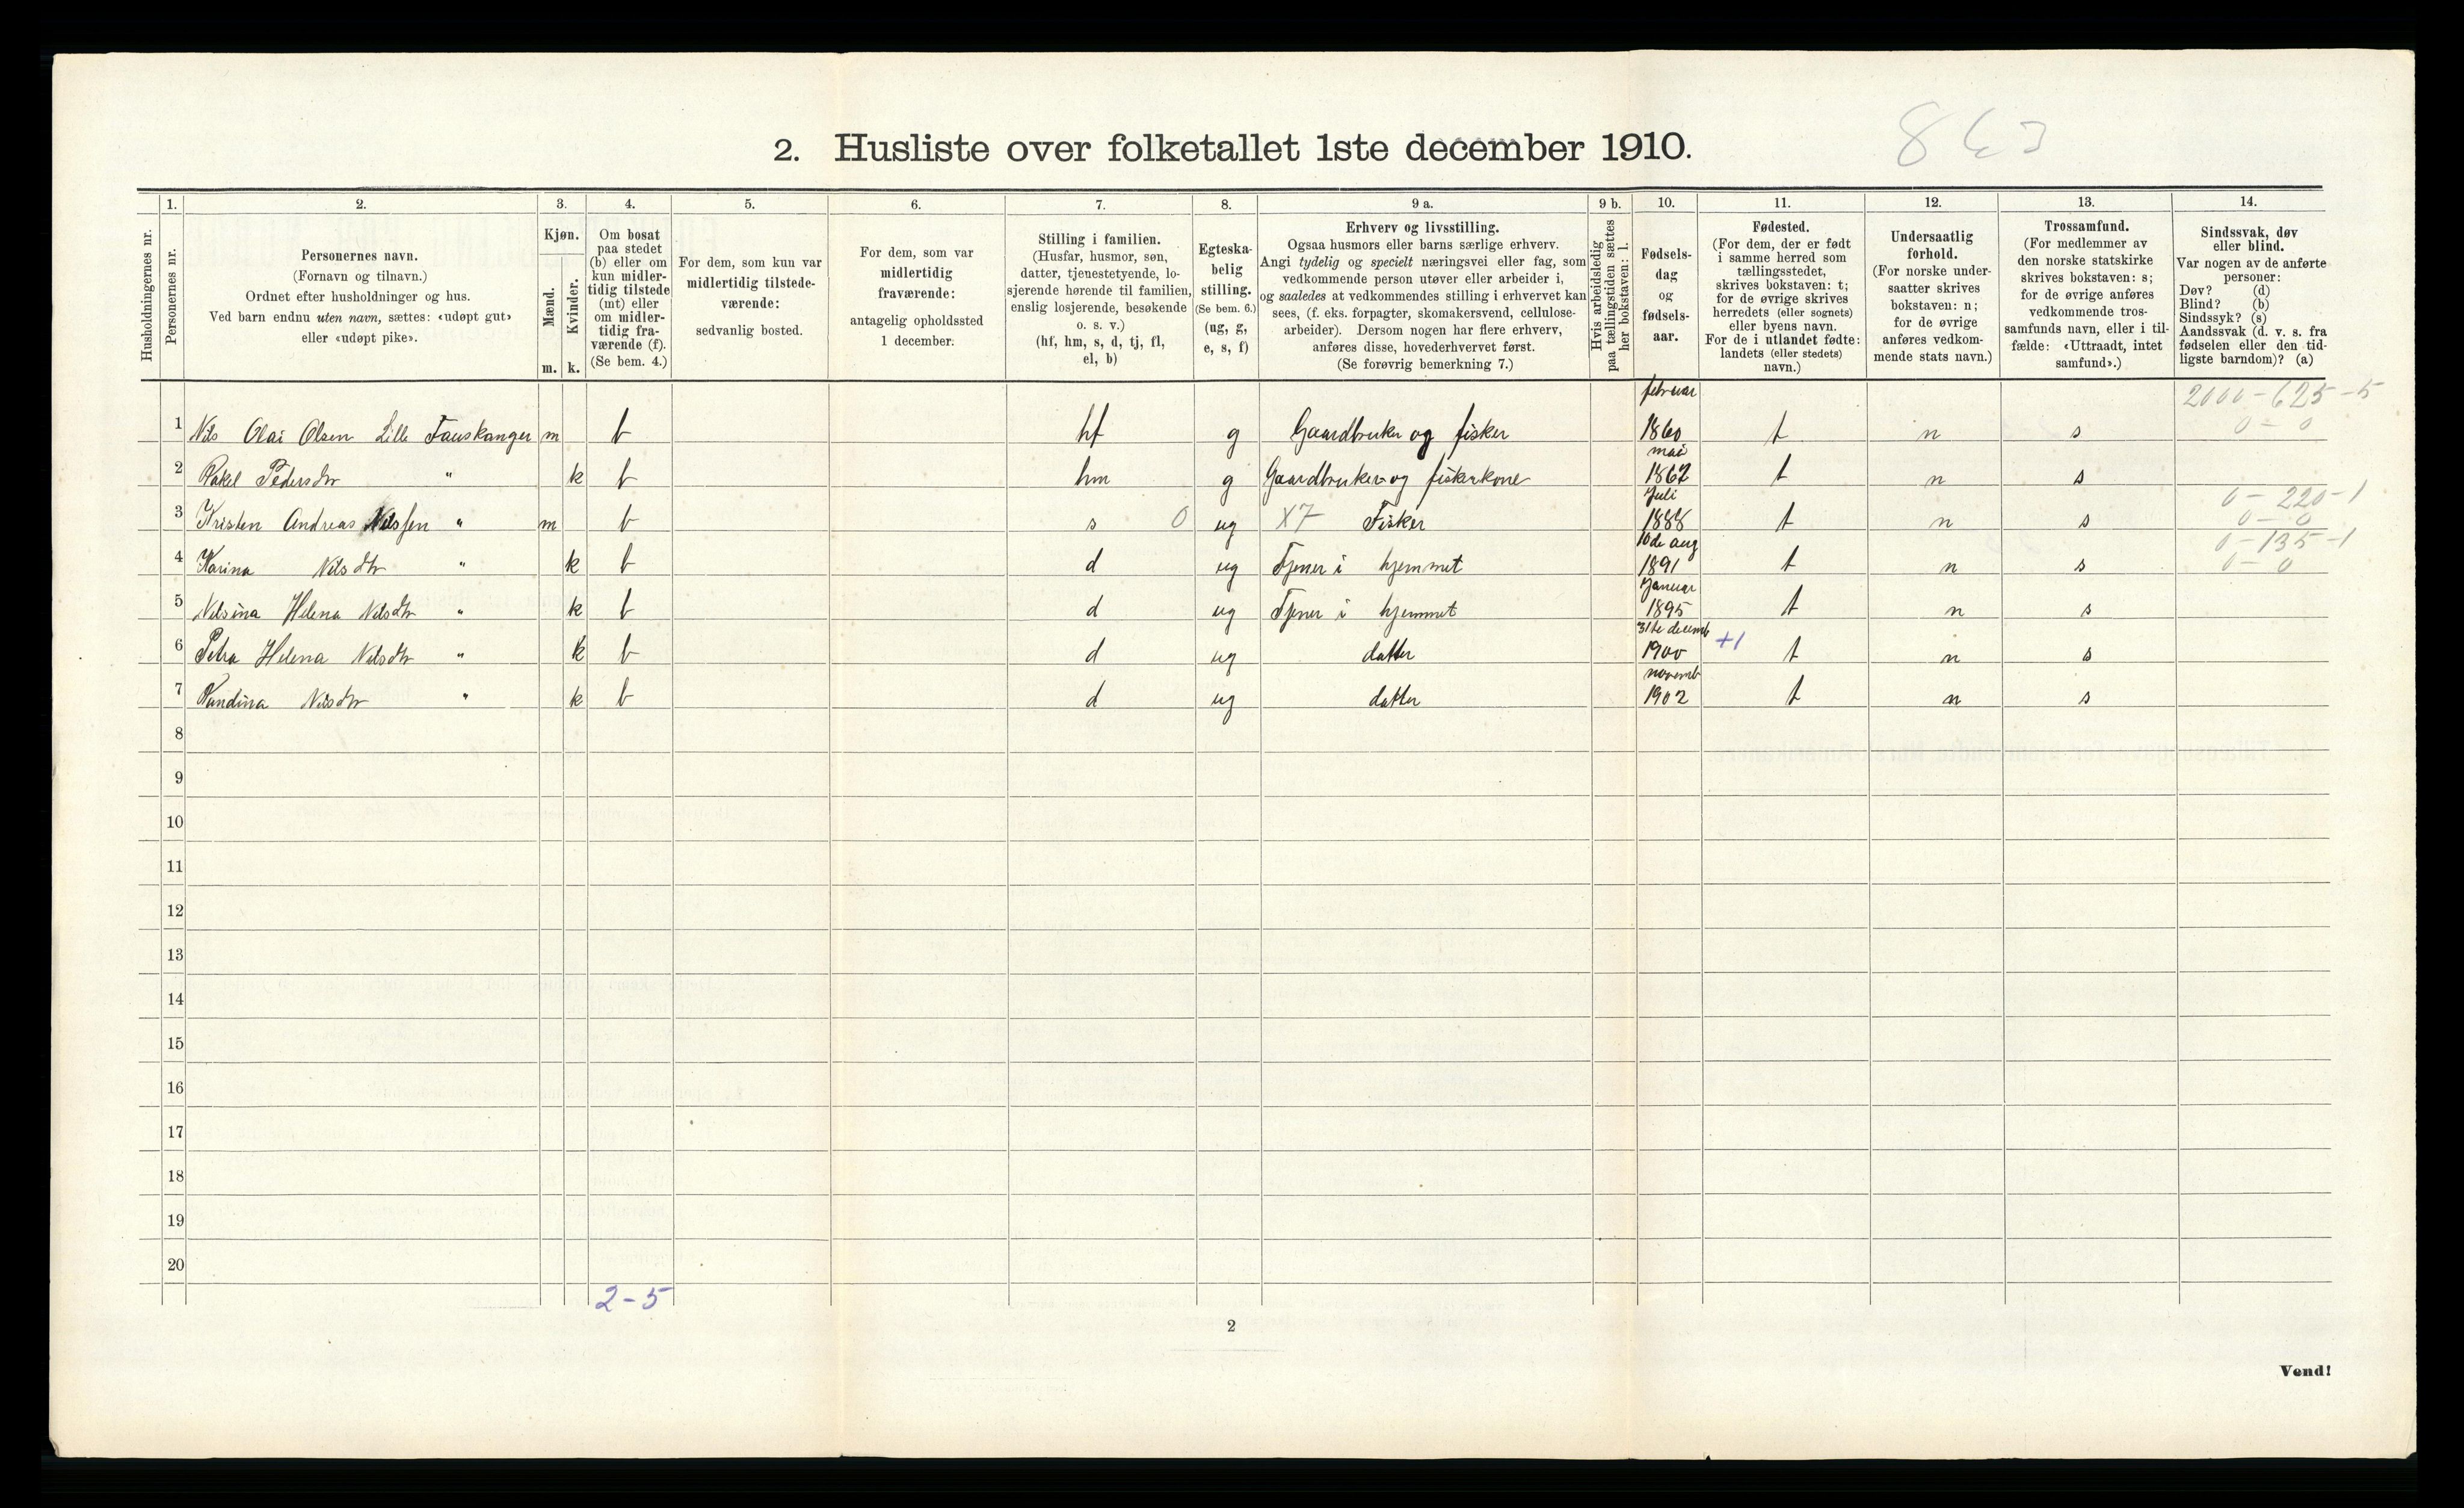 863
2. Husliste over folketallet 1ste december 1910.
Husholdningernes nr.
1. Personernes nr.
2. Personernes navn. (Fornavn og tilnavn.) Ordnet efter husholdninger og hus. Ved barn endnu uten navn, sættes: «udøpt gut» eller «udøpt pike».
3. Kjøn. Mænd. m. Kvinder. k.
4. Om bosat paa stedet (b) eller om kun midlertidig tilstede (mt) eller om midlertidig fraværende (f). (Se bem. 4.)
5. For dem, som kun var midlertidig tilstedeværende: sedvanlig bosted.
6. For dem, som var midlertidig fraværende: antagelig opholdssted 1 december.
7. Stilling i familien. (Husfar, husmor, søn, datter, tjenestetyende, losjerende hørende til familien, enslig losjerende, besøkende o. s. v.) (hf, hm, s, d, tj, fl, el, b)
8. Egteskabelig stilling. (Se bem. 6.) (ug, g, e, s, f)
9 a. Erhverv og livsstilling. Ogsaa husmors eller barns særlige erhverv. Angi tydelig og specielt næringsvei eller fag, som vedkommende person utøver eller arbeider i, og saaledes at vedkommendes stilling i erhvervet kan sees, (f. eks. forpagter, skomakersvend, cellulosearbeider). Dersom nogen har flere erhverv, anføres disse, hovederhvervet først. (Se forøvrig bemerkning 7.)
9 b. Hvis arbeidsledig paa tællingstiden sættes her bokstaven: l.
10. Fødselsdag og fødselsaar.
11. Fødested. (For dem, der er født i samme herred som tællingsstedet, skrives bokstaven: t; for de øvrige skrives herredets (eller sognets) eller byens navn. For de i utlandet fødte: landets (eller stedets) navn.)
12. Undersaatlig forhold. (For norske undersaatter skrives bokstaven: n; for de øvrige anføres vedkommende stats navn.)
13. Trossamfund. (For medlemmer av den norske statskirke skrives bokstaven: s; for de øvrige anføres vedkommende trossamfunds navn, eller i tilfælde: «Uttraadt, intet samfund».)
14. Sindssvak, døv eller blind. Var nogen av de anførte personer: Døv? (d) Blind? (b) Sindssyk? (s) Aandssvak (d. v. s. fra fødselen eller den tidligste barndom)? (a)
februar 2000-625-5
1 Nils Olai Olsen Lille Fauskanger m b hf g Gaardbruker og fisker 1860 t n s 0-0
mai
2 Rakel Pedersdtr " k b hm g Gaardbruker og fiskerkone 1862 t n s
Juli 0-220-1
3 Kristen Andreas Nilssen " m b s 0 ug X7 Fisker 1888 t n s 0-0
10de aug 0-135-1
4 Karina Nilsdtr " k b d ug Tjener i hjemmet 1891 t n s 0-0
Januar
5 Nilsina Helena Nilsdtr " k b d ug Tjener i hjemmet 1895 t n s
31te decemb
6 Petra Helena Nilsdtr " k b d ug datter 1900 +1 t n s
novemb
7 Randina Nilsdtr " k b d ug datter 1902 t n s
8
9
10
11
12
13
14
15
16
17
18
19
20
2-5
2
Vend!